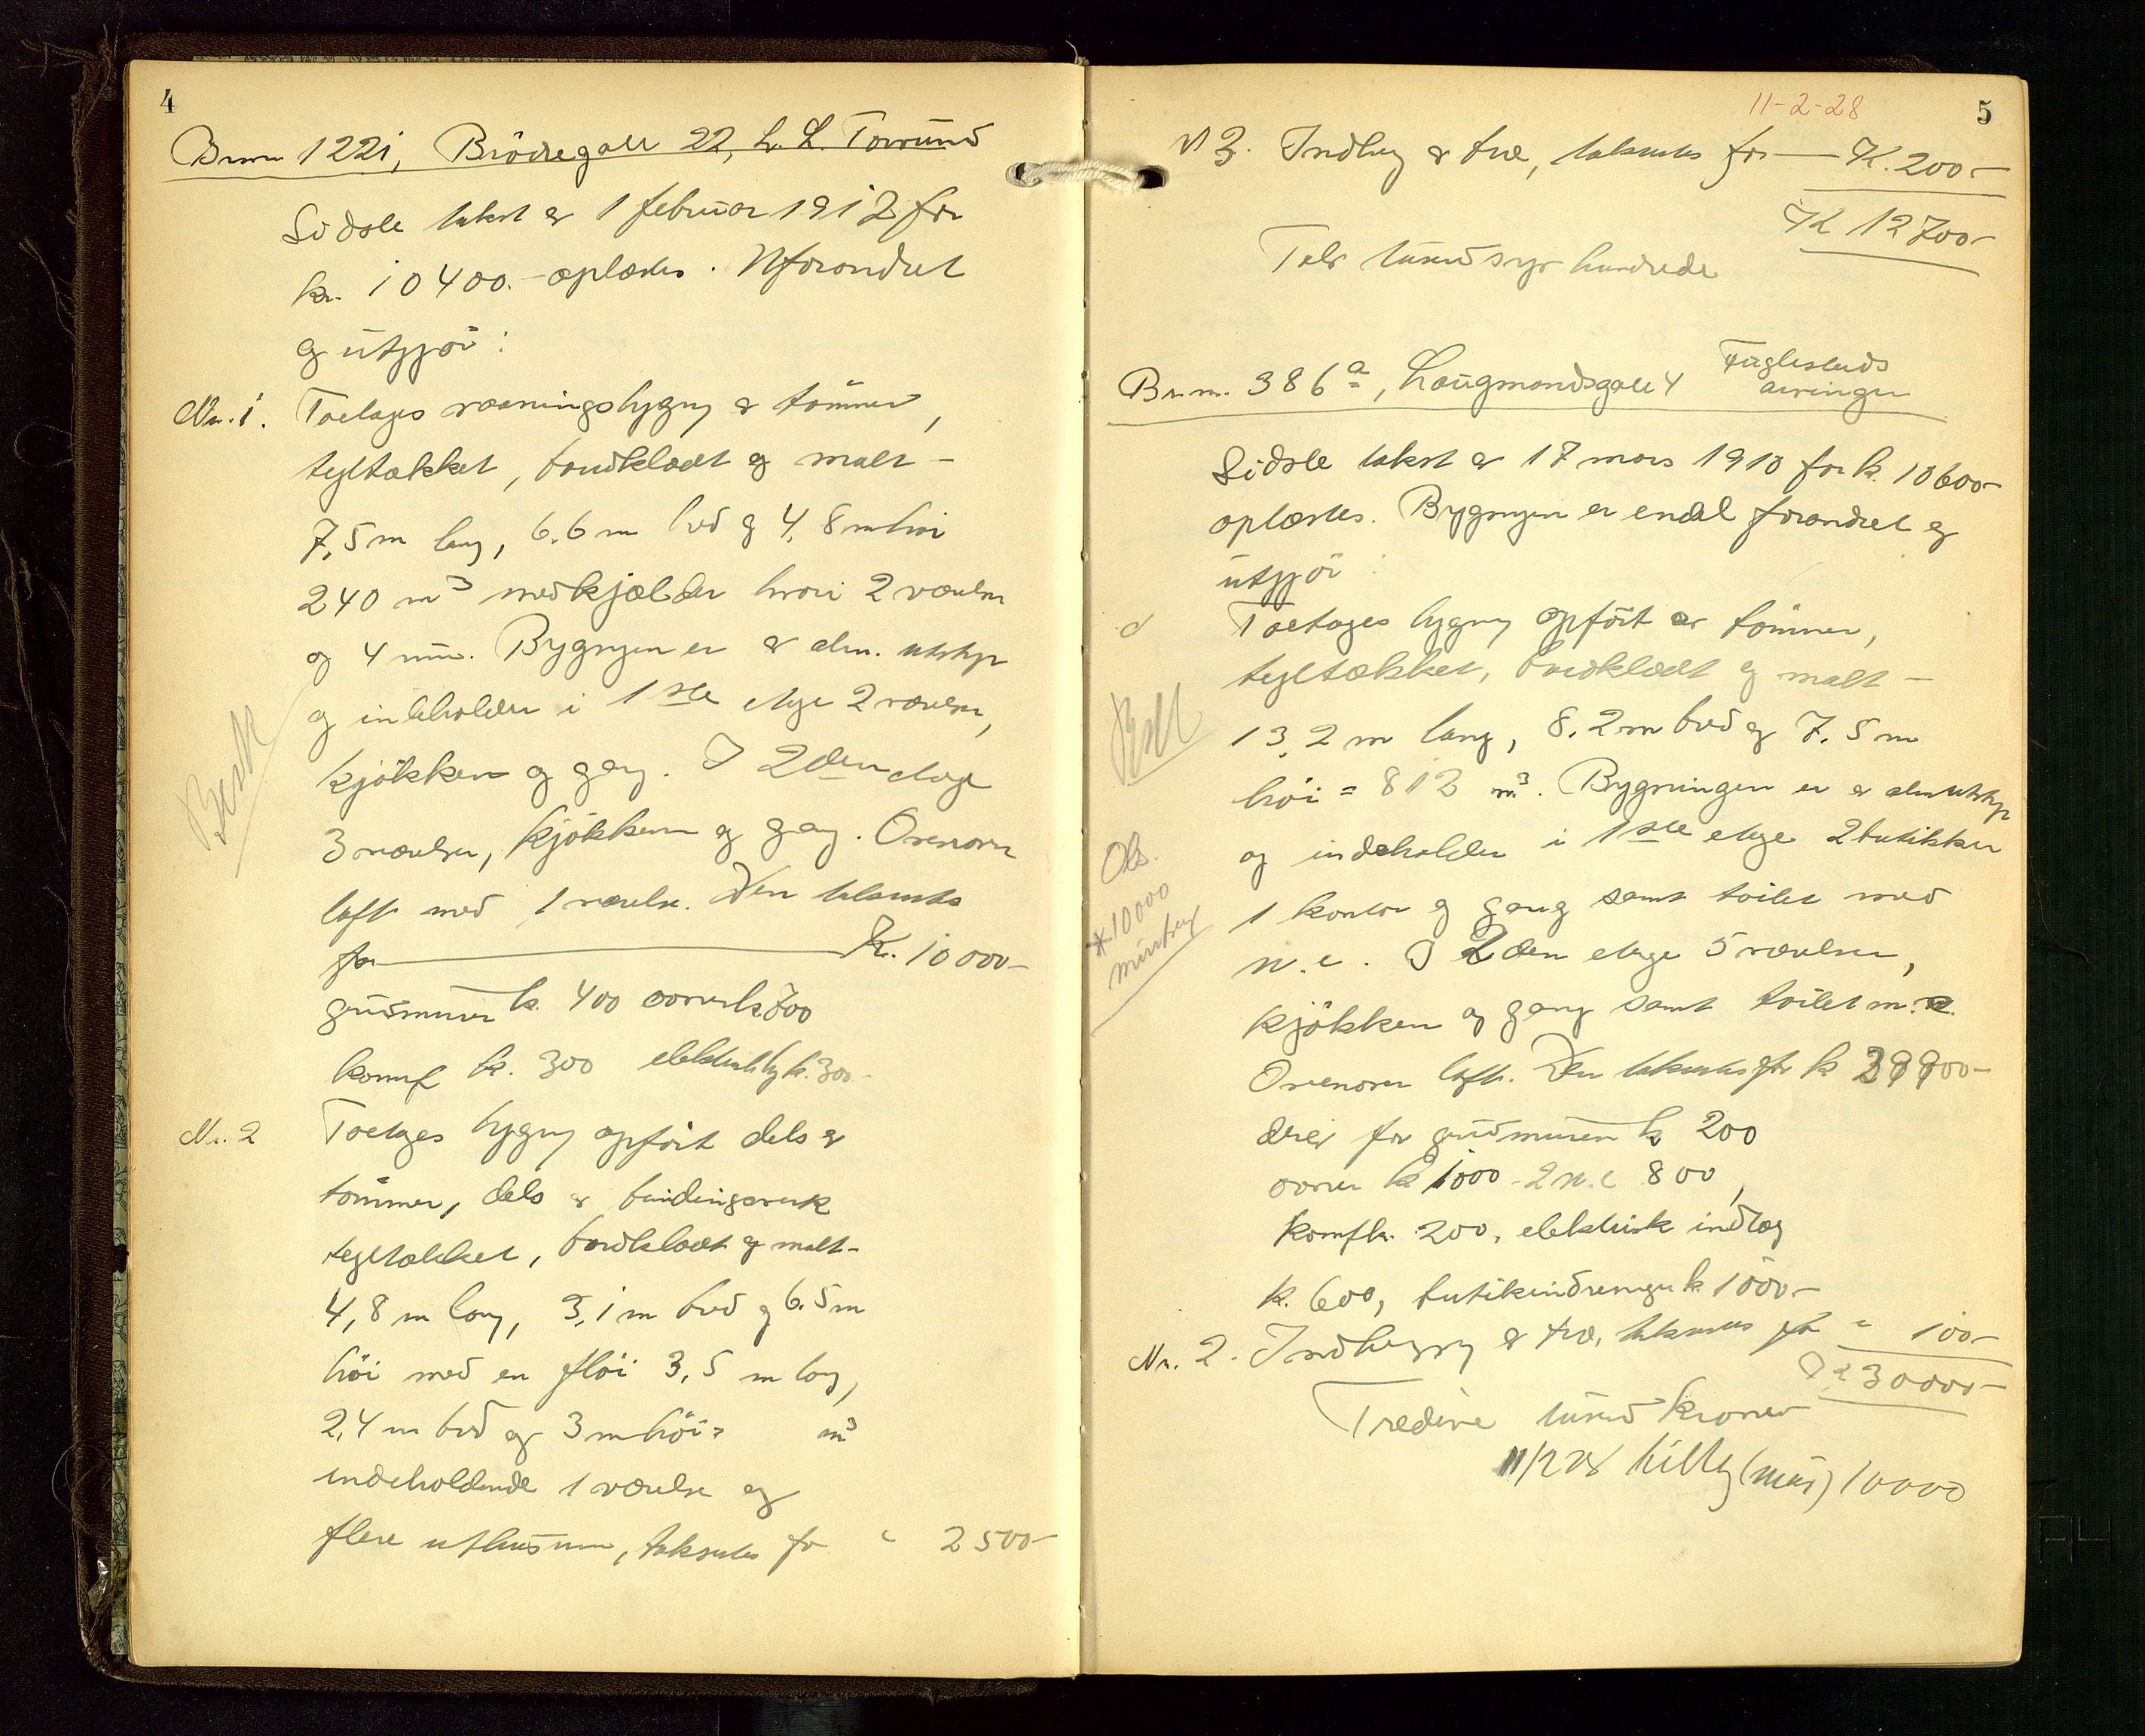 4
Brnr 1221, Brödregate 22, hr. L. Torsund
Sidste takst er 1 februar 1912 for
kr. 10400.- oplæstes. Uforandret
og utgjör:
Nr. 1. Toetages vaaningsbygn av tömmer,
tegltækket, bordklædt og malt -
7,5 m lang, 6.6 m bred og 4,8 m höi
240 m³ med kjælder hvori 2 værelser
og 4 rum. Bygngen er av alm. utstyr
og indeholder i 1ste etage 2 værelser,
kjökken og gang. I 2den etage
Besk
3 værelser, kjökken og gang. Ovenover
loft med 1 værelse. Den takseres
for K. 10000-
grudmuren k. 400 ovner k. 700
komf k. 300 elektrisk lys k. 300-
Nr. 2 Toetages bygng opfört dels av
tömmer, dels av bindingsverk
tegltækket, bordklædt og malt-
4,8 m lang, 3,1 m bred og 6.5 m
höi med en flöi 3,5 m lang,
2,4 m bred og 3 m höi = m³
indeholdende 1 værelse og
flere uthusrum, takseres for " 2500-
11-2-28
5
N 3. Indheg av træ, takseres for K. 200-
K 12700-
Tolv tusind syv hundrede
Br.nr. 386a, Laugmandsgate 4 Fuglestads
arvinger
Sidste takst er 17 mars 1910 for k. 10600-
oplæstes. Bygngen er endel forandret og
utgjör:
d Toetages bygng opfört av tömmer,
tegltækket, bordklædt og malt -
13,2 m lang, 8.2 m bred og 7.5 m
Besk
höi = 812 m³. Bygningen er av alm utstyr
og indeholder i 1ste etage 2 butikker
Obs.
* 10000
1 kontor og gang samt toilet med
w.c. I 2den etage 5 værelser,
kjökken og gang samt toilet m. w.c.
Ovenover loft. Den takseres for k 29900-
derav for grudmuren k 200
ovner k 1000 - 2 w.c 800,
komf k. 200, elektrisk indlæg
k. 600, butikindredninger k. 1000-
Nr. 2. Indhegng av træ, takseres for " 100-
K 30000-
Tredive tusind kroner
11/2 28 tilbyg (mur) 10000